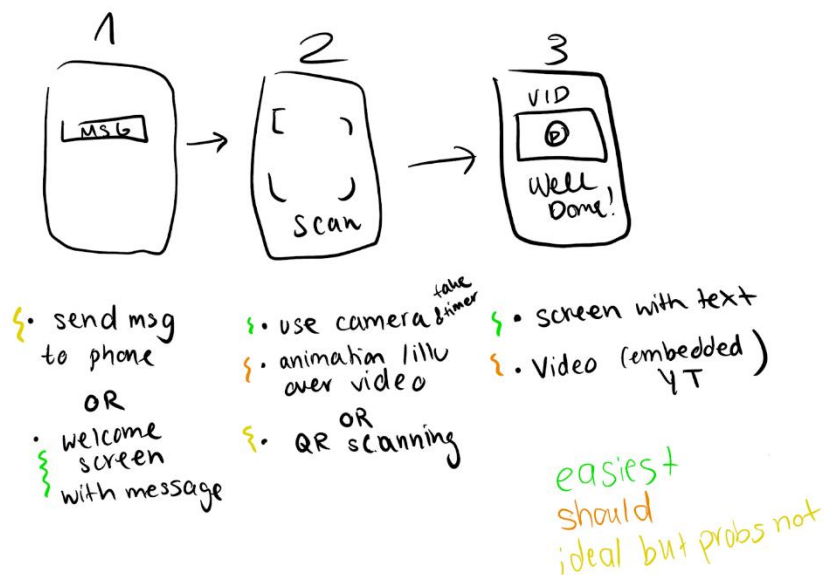 1
MSG
2
scan
3
VID
Well
Done!
• send msg
to phone
OR
• welcome
screen
with message
• use camera & fake timer
• animation / illu
over video
OR
• QR scanning
• screen with text
• Video (embedded
YT)
easiest
should
ideal but probs not